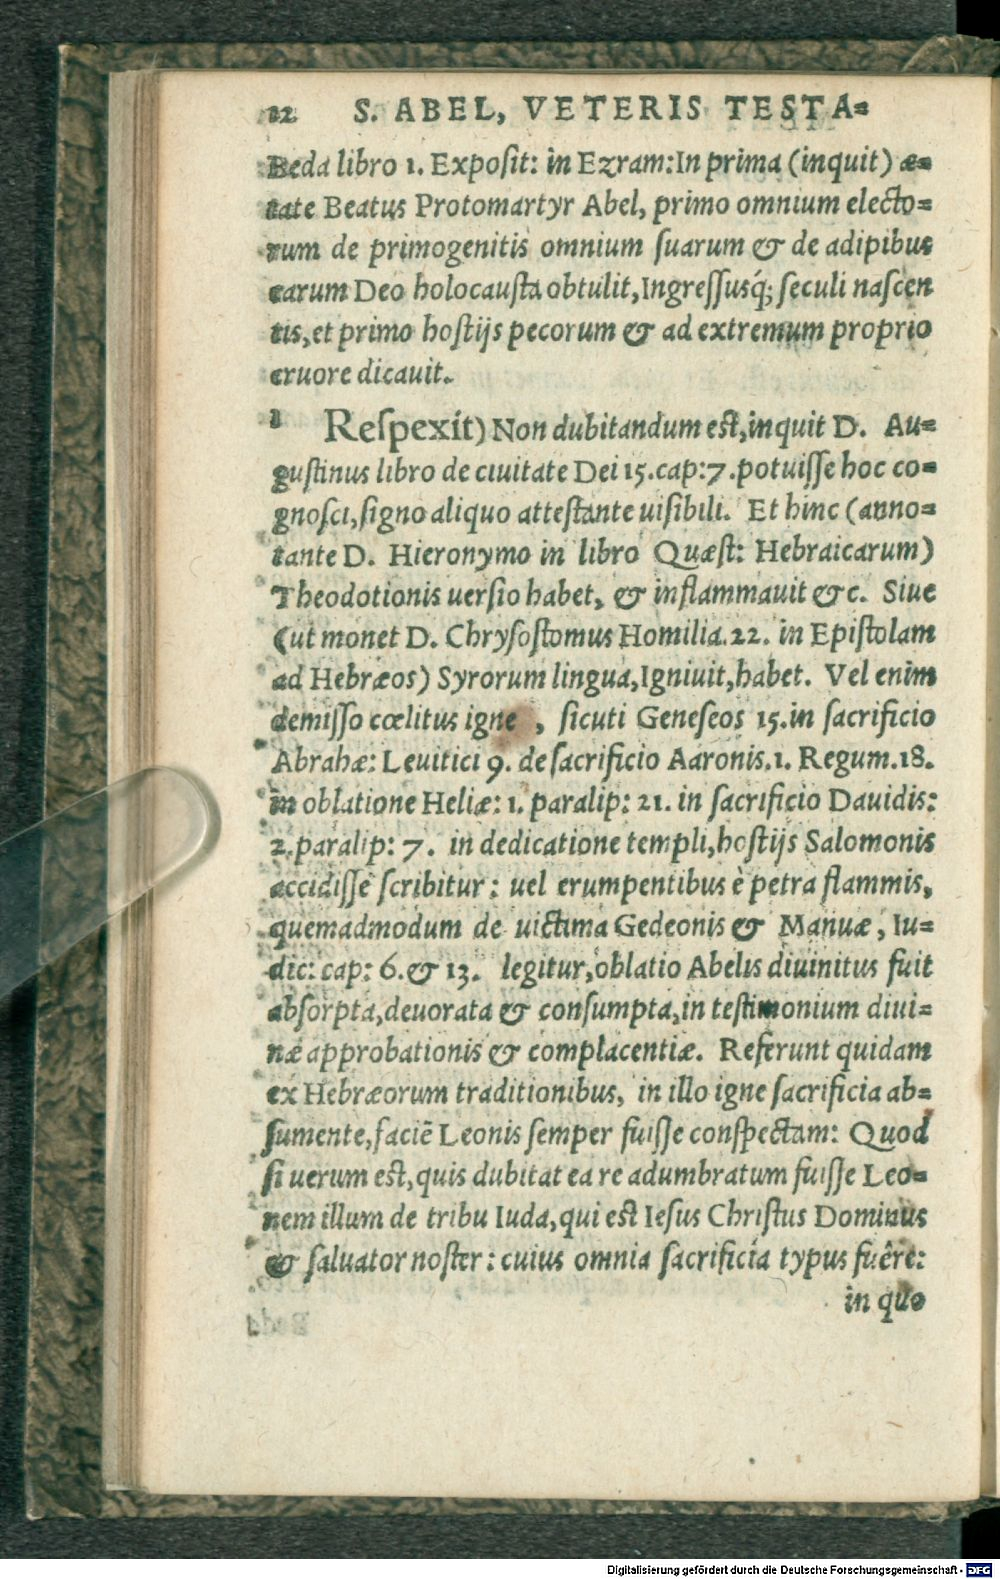 12 S. ABEL, VETERIS TESTA=
Beda libro 1. Exposit: in Ezram:In prima (inquit) æ=
tate Beatus Protomartyr Abel, primo omnium electo=
rum de primogenitis omnium suarum & de adipibus
earum Deo holocausta obtulit, Ingressusq́; seculi nascen
tis, et primo hostijs pecorum & ad extremum proprio
cruore dicavit.
1 Respexit) Non dubitandum est, inquit D. Au=
gustinus libro de ciuitate Dei 15. cap: 7. potuisse hoc co=
gnosci, signo aliquo attestante uisibili. Et hinc (anno=
tante D. Hieronymo in libro Quæst: Hebraicarum)
Theodotionis uersio habet, & inflammauit &c. Siue
(ut monet D. Chrysostomus Homilia. 22. in Epistolam
ad Hebræos) Syrorum lingua, Igniuit, habet. Vel enim
demisso cœlitus igne, sicuti Geneseos 15. in sacrificio
Abrahæ: Leuitici 9. de sacrificio Aaronis. 1. Regum. 18.
in oblatione Heliæ: 1. paralip: 21. in sacrificio Dauidis:
2. paralip: 7. in dedicatione templi, hostijs Salomonis
accidisse scribitur: uel erumpentibus è petra flammis,
quemadmodum de uictima Gedeonis & Manuæ, Iu=
dic: cap: 6. & 13. legitur, oblatio Abelis diuinitus fuit
absorpta, deuorata & consumpta, in testimonium diui=
næ approbationis & complacentiæ. Referunt quidam
ex Hebræorum traditionibus, in illo igne sacrificia ab=
sumente, faciē Leonis semper fuisse conspectam: Quod
si uerum est, quis dubitat ea re adumbratum fuisse Leo=
nem illum de tribu Iuda, qui est Iesus Christus Dominus
& saluator noster: cuius omnia sacrificia typus fuêre:
in quo
Digitalisierung gefördert durch die Deutsche Forschungsgemeinschaft - DFG